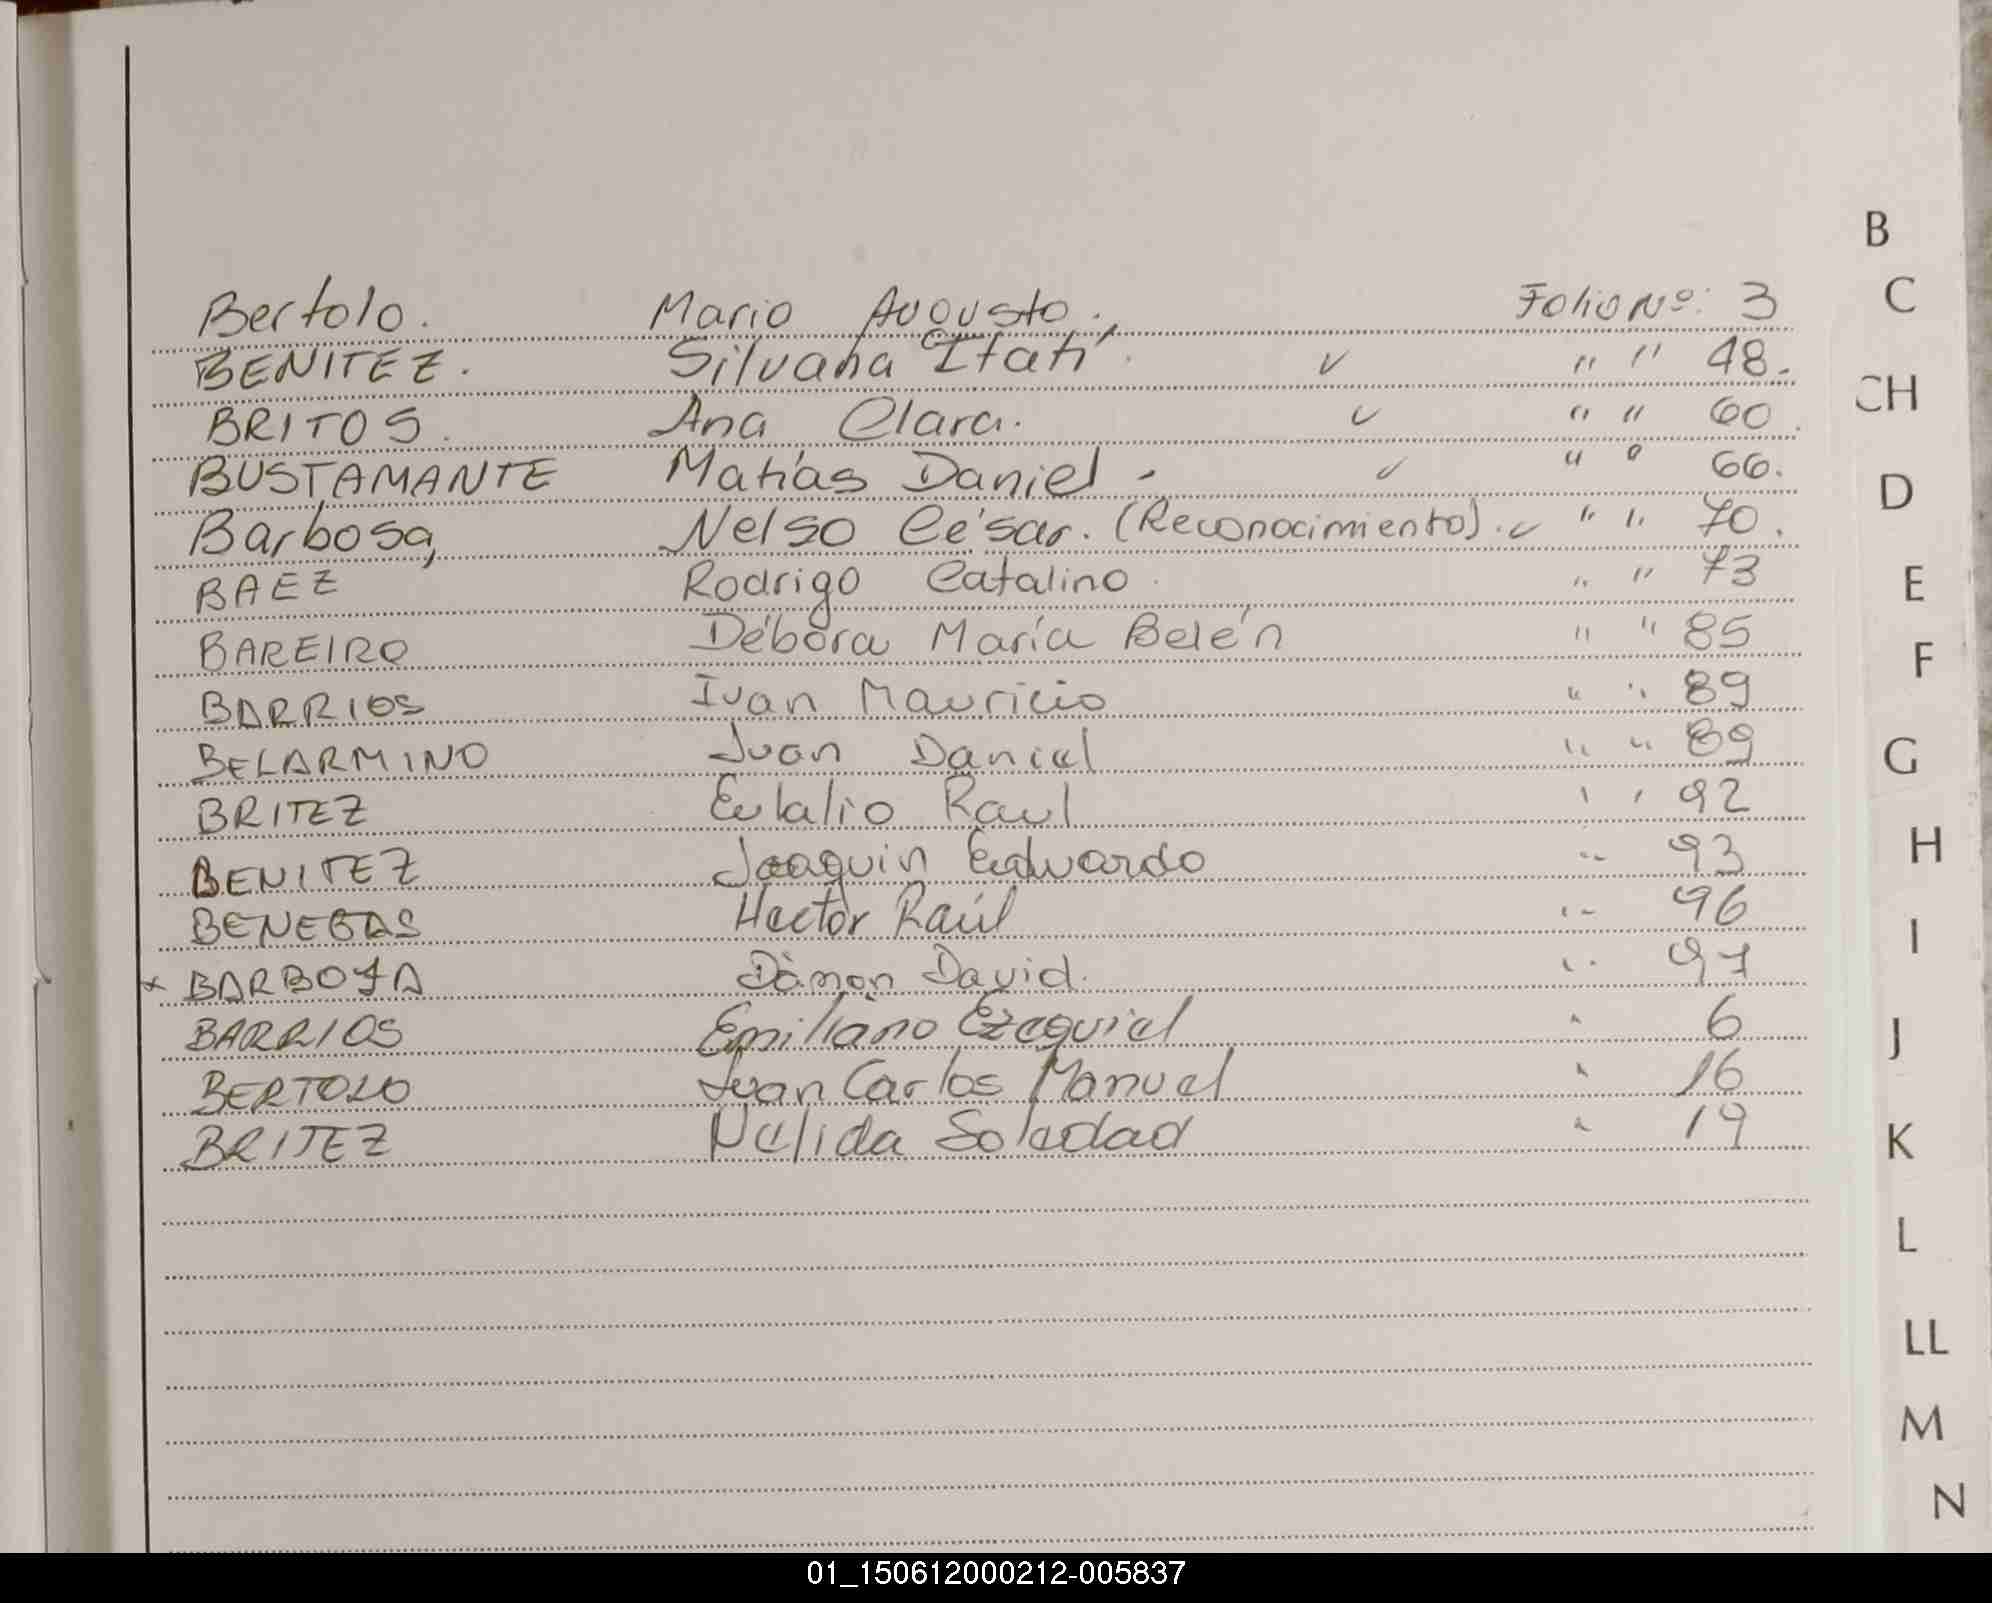 B
Bertolo. Mario Augusto. Folio Nº: 3
C
BENITEZ. Silvana Itatí. ✓ " " 48.
CH
BRITOS. Ana Clara. ✓ " " 60.
BUSTAMANTE Matías Daniel. ✓ " " 66.
D
Barbosa, Nelso César. (Reconocimiento). ✓ " " 70.
BAEZ Rodrigo Catalino. " " 73
E
BAREIRO Débora María Belén " " 85
F
BARRIOS Ivan Mauricio " " 89
BELARMINO Juan Daniel " " 89
G
BRITEZ Eulalio Raul " " 92
H
BENITEZ Joaquin Eduardo " 93
BENEGAS Hector Raúl " 96
I
x BARBOSA Damon David. " 97
BARRIOS Emiliano Ezequiel " 6
J
BERTOLO Juan Carlos Manuel " 16
BRITEZ Nelida Soledad " 19
K
L
LL
M
N
01_150612000212-005837